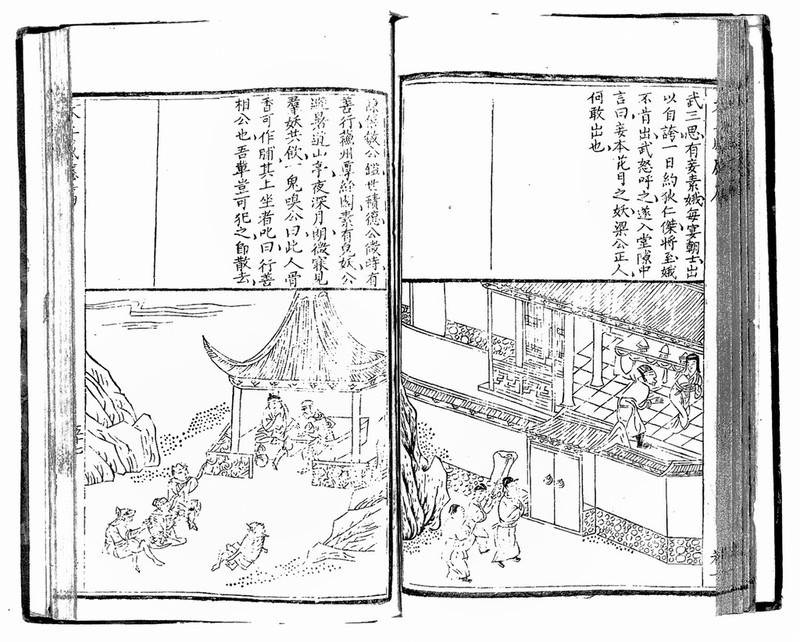 武三思有妾素娥每宴朝士出
以自誇一日約狄仁傑將至娥
不肯出武怒呼之遂入堂隙中
言曰妾本花月之妖梁公正人
何敢出也
陳僖敏公鎰世積德公微時有
善行蘇州尊經閣素有鬼妖公
避暑道山亭夜深月朗微寐見
羣妖共飲一鬼嗅公曰此人骨
香可作脯其上坐者叱曰行善
相公也吾輩豈可犯之即散去